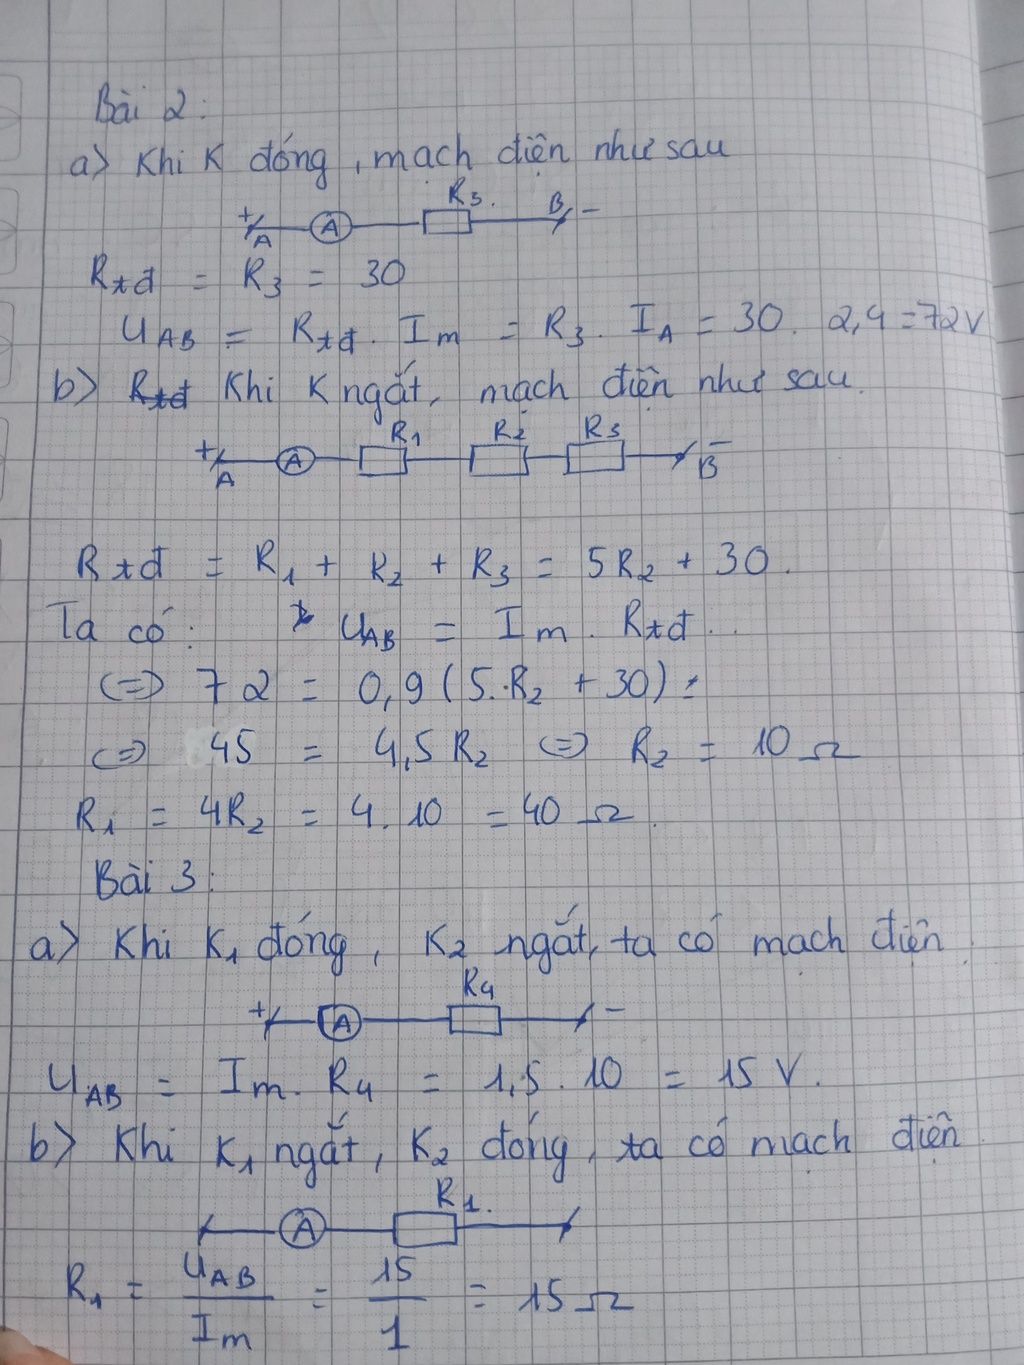 Bài 2:
a> Khi K đóng, mạch điện như sau
R3.
+ A A B -
Rtđ = R3 = 30
UAB = Rtđ. Im = R3. IA = 30. 2,4 = 72V
b> Rtđ Khi K ngắt, mạch điện như sau.
R1 R2 R3
+ A A B -
Rtđ = R1 + R2 + R3 = 5R2 + 30.
Ta có: UAB = Im. Rtđ.
<=> 72 = 0,9(5.R2 + 30) :
<=> 45 = 4,5R2 <=> R2 = 10 Ω
R1 = 4R2 = 4.10 = 40 Ω.
Bài 3:
a> Khi K1 đóng, K2 ngắt, ta có mạch điện
R4
+ A -
UAB = Im. R4 = 1,5.10 = 15 V.
b> Khi K1 ngắt, K2 đóng, ta có mạch điện
R1.
A
R1 = UAB / Im = 15 / 1 = 15 Ω